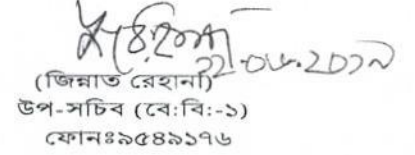 ২২-০৮-২০১৯
(জিন্নাত রেহানা)
উপ-সচিব (বে:বি:-১)
ফোনঃ৯৫৪৯১৭৬